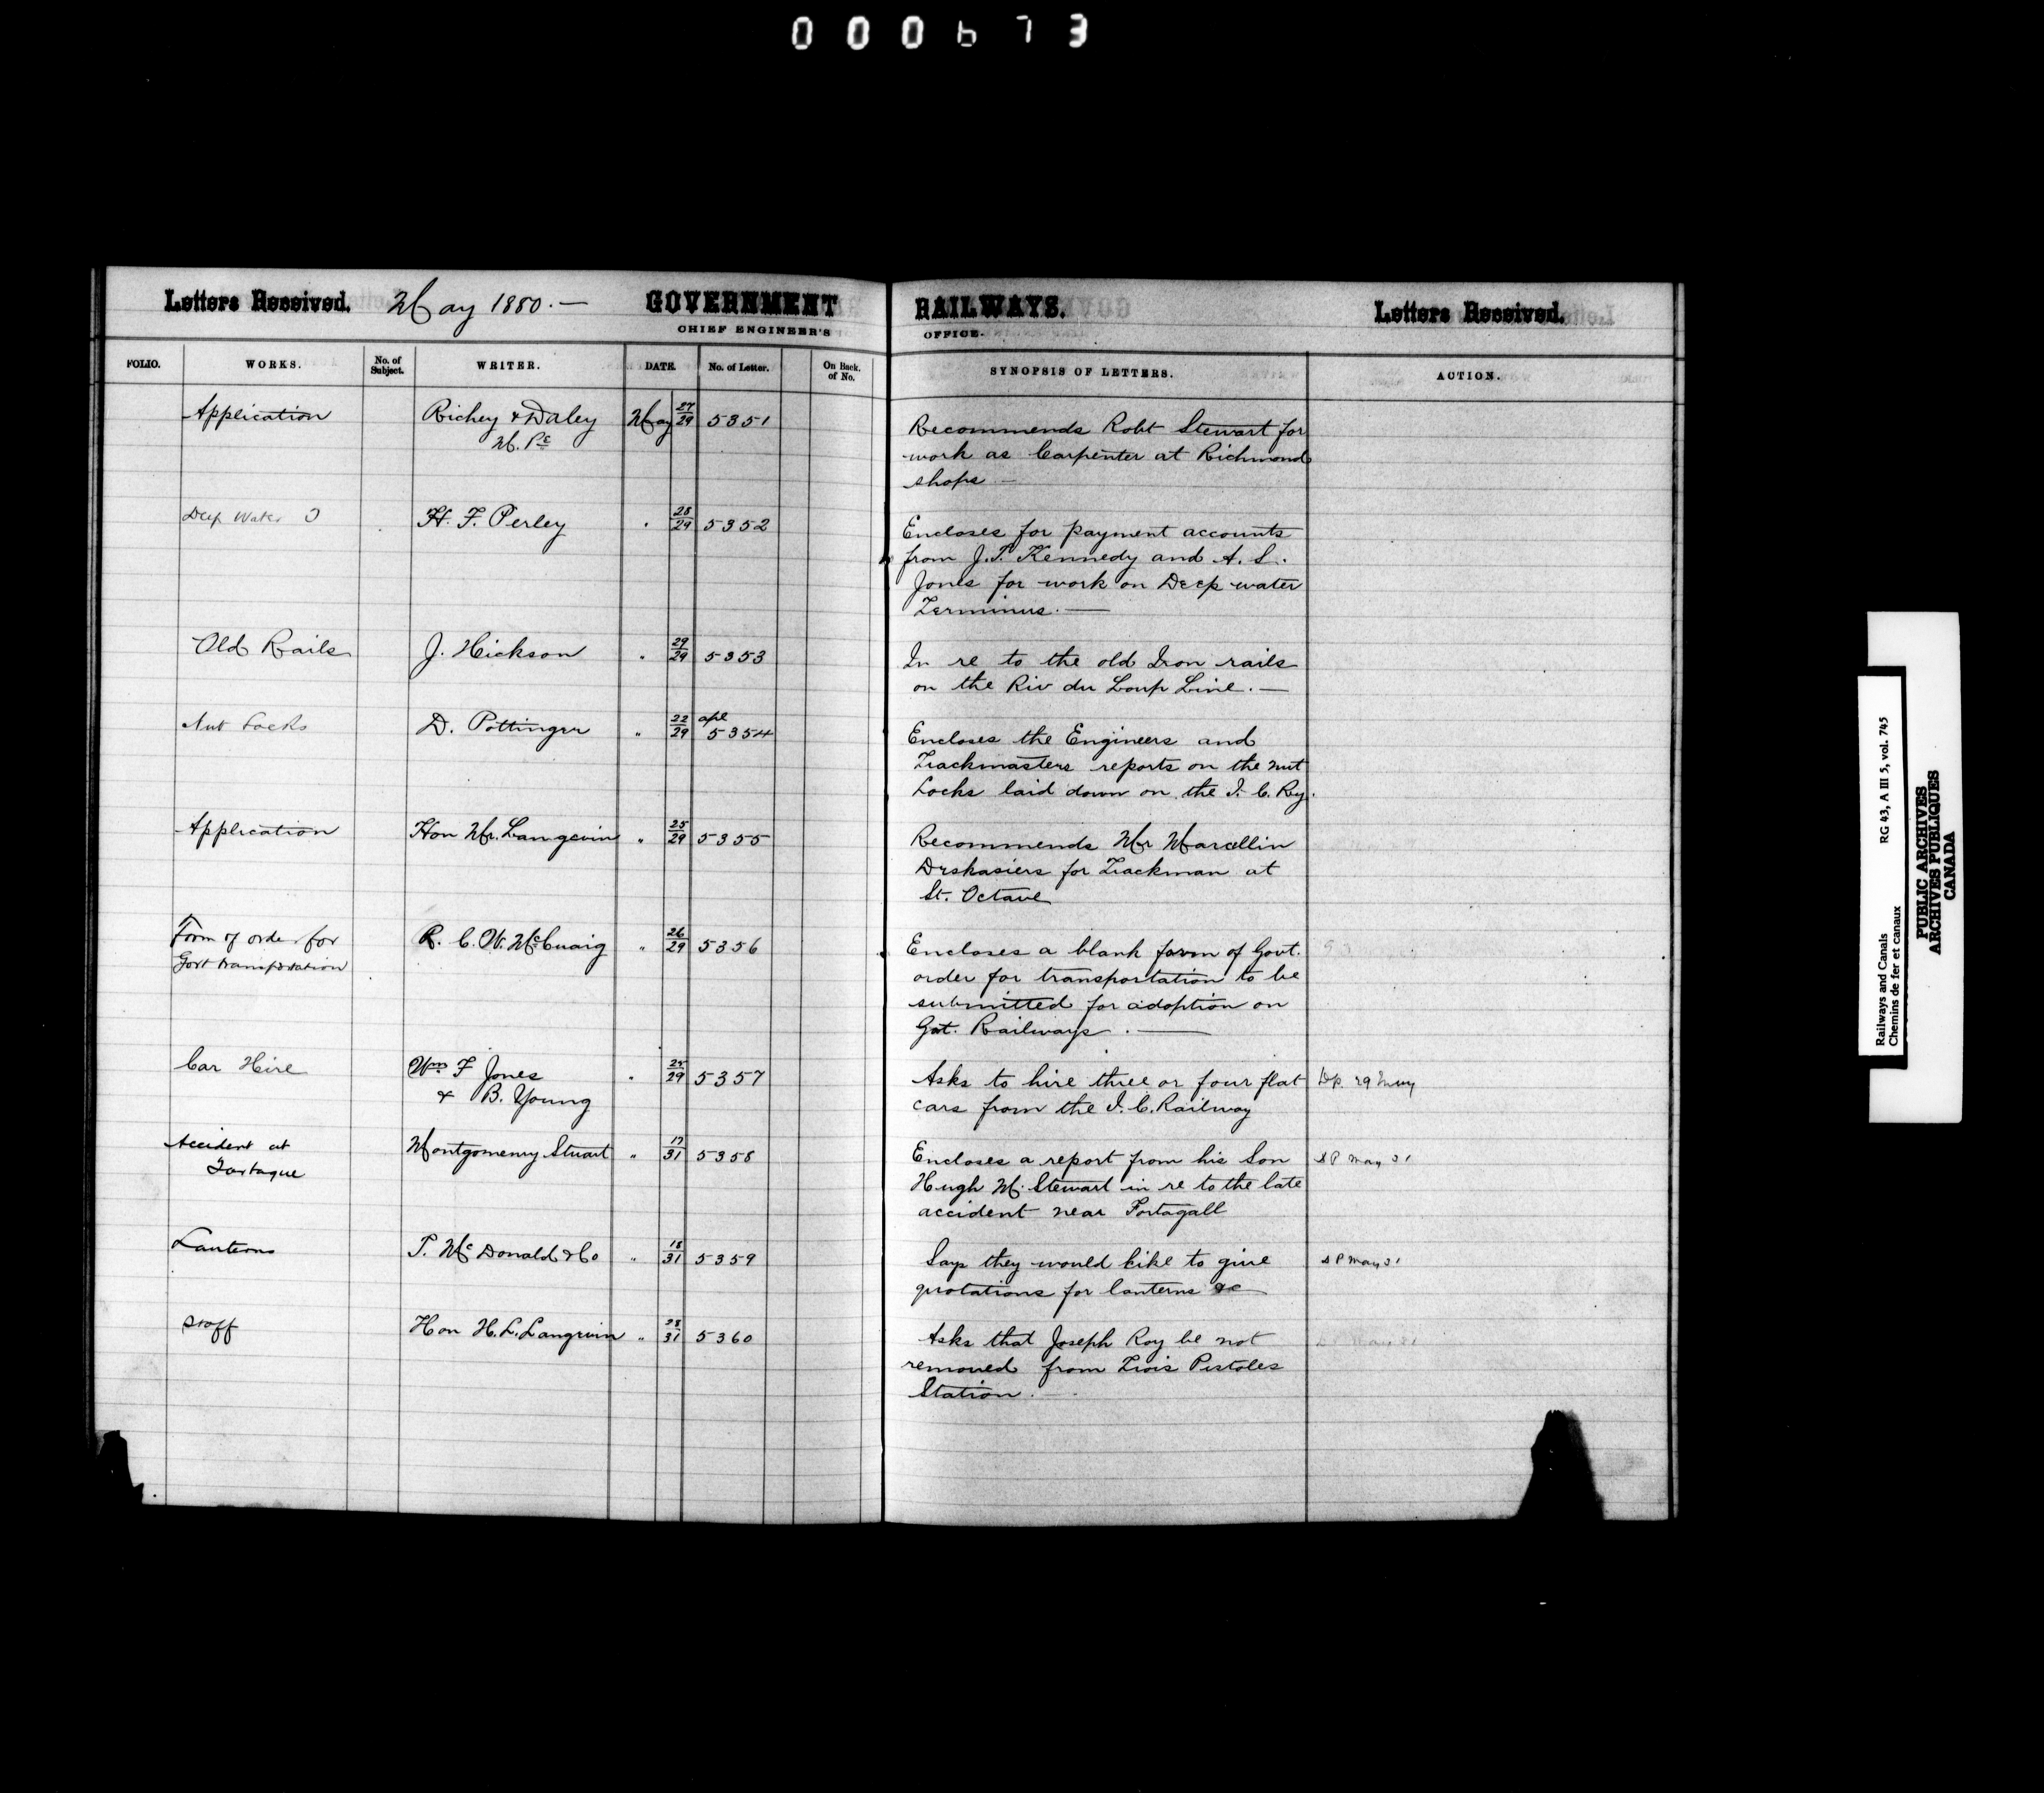 000673
Letters Received. May 1880.— GOVERNMENT RAILWAYS. Letters Received.
CHIEF ENGINEER'S OFFICE.
FOLIO. WORKS. No. of Subject. WRITER. DATE. No. of Letter. On Back. of No. SYNOPSIS OF LETTERS. ACTION.
Application Richey & Daley May 27/29 5351 Recommends Robt Stewart for
M.Ps work as Carpenter at Richmond
shops —
Deep Water H. F. Perley " 28/29 5352 Encloses for payment accounts
from J.T. Kennedy and A. S.
Jones for work on Deep water
Terminus. —
Old Rails J. Hickson " 29/29 5353 In re to the old Iron rails
on the Riv du Loup Line. —
Nut Locks D. Pottinger " 22/29 apl 5354 Encloses the Engineers and
Trackmasters reports on the nut
Locks laid down on the I. C. Ry.
Application Hon Mr. Langevin " 25/29 5355 Recommends Mr Marcellin
for Trackman at
St. Octave
Form of order for R. C. W. McCuaig " 26/29 5356 Encloses a blank form of Govt.
Govt transportation order for transportation to be
submitted for adoption on
Govt. Railways. —
Car Hire Wm F Jones " 25/29 5357 Asks to hire three or four flat Dp. 29 May
& B. Young cars from the I. C. Railway
Accident at Montgomery Stuart " 17/31 5358 Encloses a report from his Son SP May 31
Tartague Hugh M. Stewart in re to the late
accident near Tortagall
Lanterns T. McDonald & Co " 18/31 5359 Says they would like to give SP May 31
quotations for lanterns &c
Staff Hon H. L. Langevin " 28/31 5360 Asks that Joseph Roy be not May 31
removed from Trois Pistoles
Station.
Railways and Canals RG 43, A III 5, vol. 745
Chemins de fer et canaux
PUBLIC ARCHIVES
ARCHIVES PUBLIQUES
CANADA